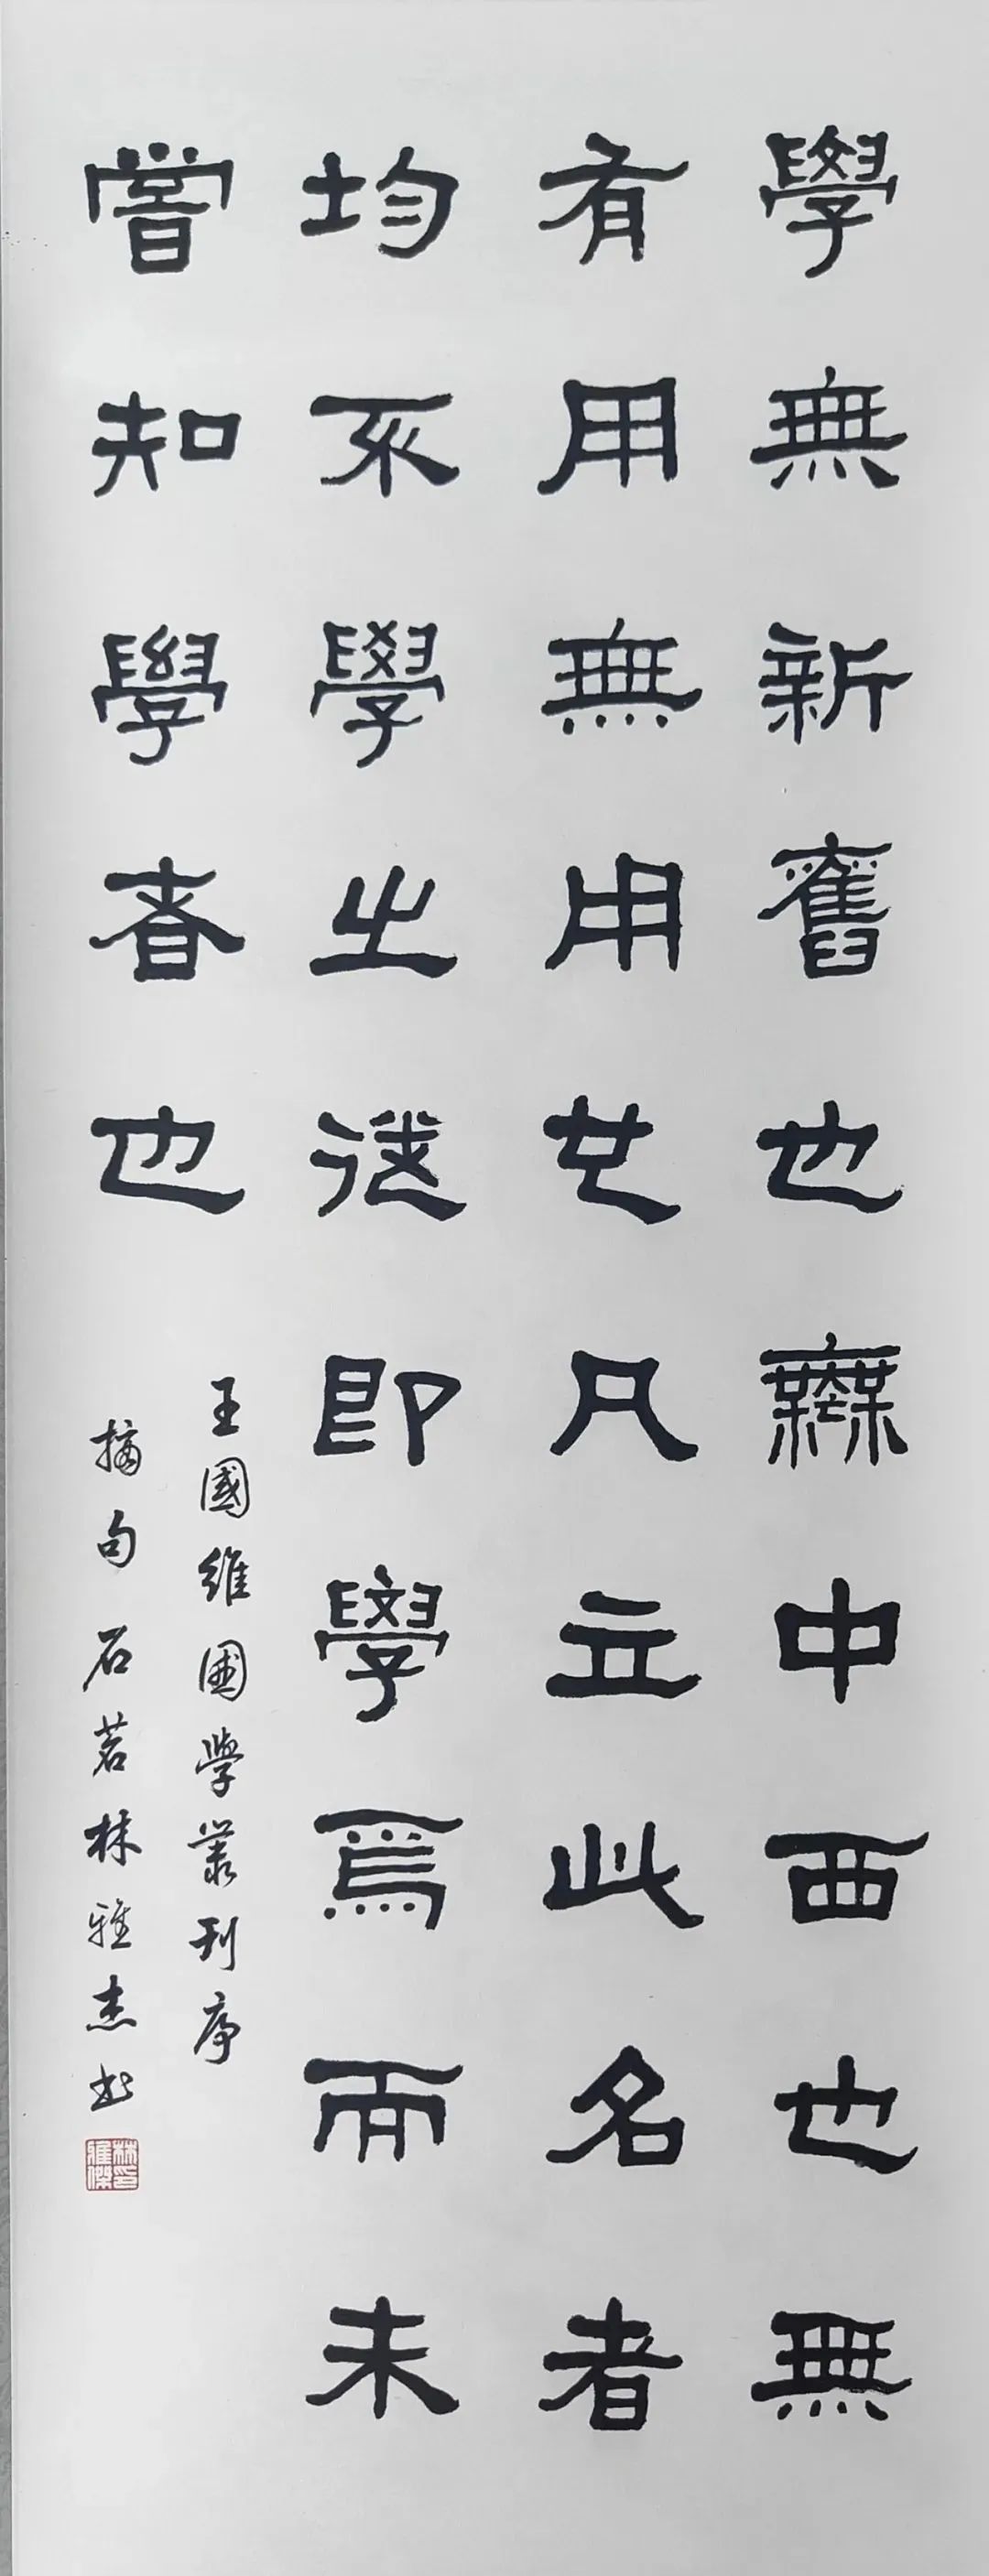 學無新舊也無中西也無
有用無用也凡立此名者
均不學之徒即學焉而未
嘗知學者也
王國維國學叢刊序
摘句石茗林雅杰书
林印雅傑